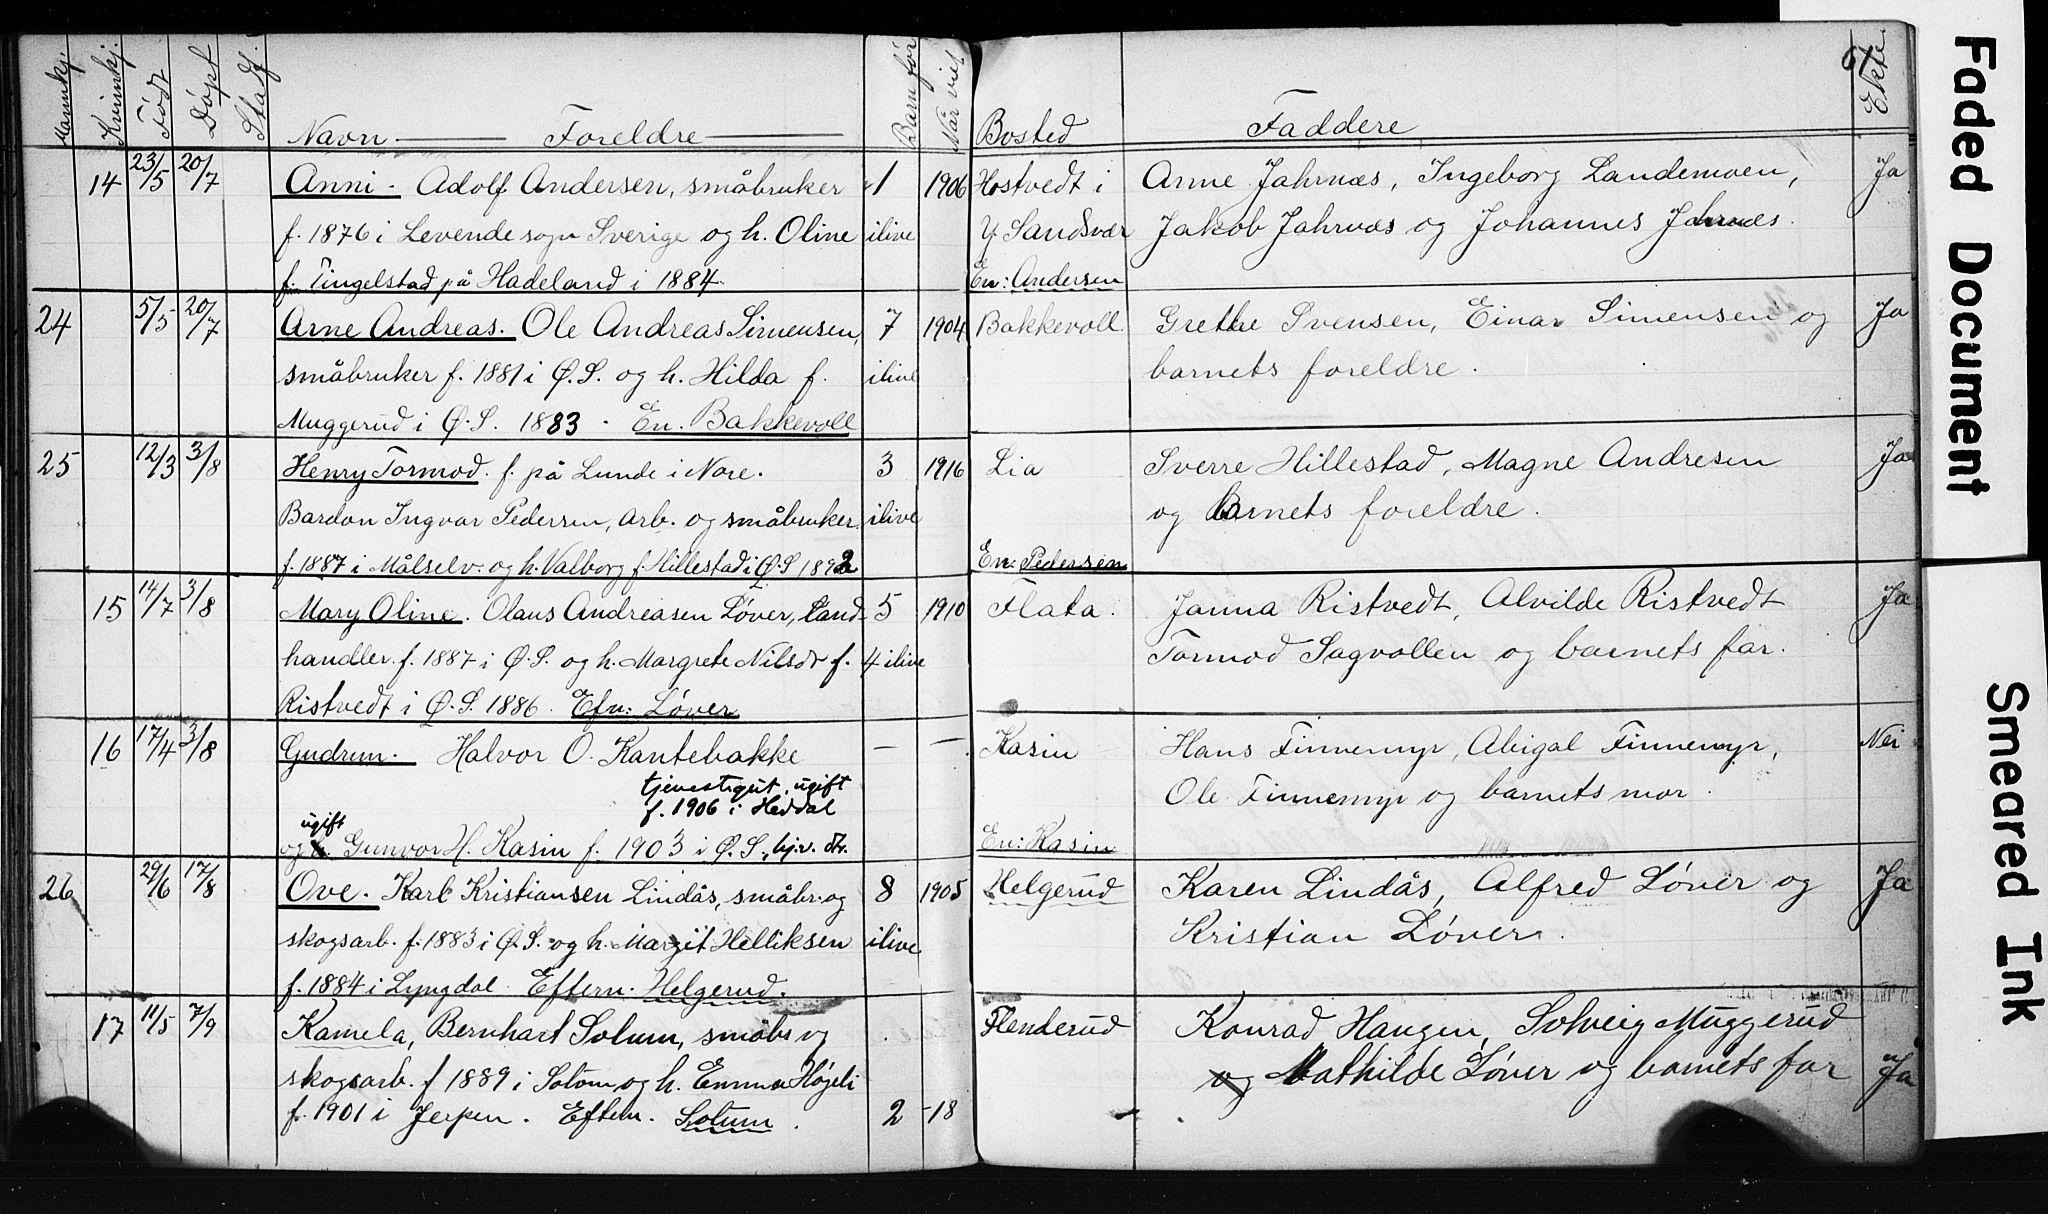 61
Mannkj. Kvinnkj. Født Døpt Stad. Navn — Foreldre — Barn før Når viet Bosted Faddere Ekte
14 23/5 20/7 Anni. Adolf Andersen, småbruker 1 1906 Hostvedt i Anne Jahrnæs, Ingeborg Landemoen, Ja
f. 1876 i Levende sogn Sverige og h. Oline ilive Y Sandsvær Jakob Jahrnæs og Johannes Jahrnæs.
f. Tingelstad på Hadeland i 1884. En: Andersen
24 5/5 20/7 Arne Andreas. Ole Andreas Simensen, 7 1904 Bakkevoll Grethe Svensen, Einar Simensen og Ja
småbruker f. 1881 i Ø.S. og h. Hilda f. ilive barnets foreldre.
Muggerud i Ø.S. 1883. En. Bakkevoll
25 12/3 3/8 Henry Tormod. f. på Lunde i Nore. 3 1916 Lia Sverre Hillestad, Magne Andresen Ja
Bardon Ingvar Pedersen, arb. og småbruker ilive og barnets foreldre.
f. 1887 i Målselv. og h. Valborg f. Hillestad i Ø.S 1892 En: Pedersen
15 14/7 3/8 Mary Oline. Olaus Andreasen Løver, land- 5 1910 Flata. Janna Ristvedt, Alvilde Ristvedt Ja
handler. f. 1887 i Ø.S. og h. Margrete Nilsdt f. 4 ilive Tormod Sagvollen og barnets far.
Ristvedt i Ø.S. 1886. Efn: Løver
16 17/4 3/8 Gudrun. Halvor O. Kantebakke — — Kasin Hans Finnemyr, Abigal Finnemyr, Nei
tjenestegut, ugift
f. 1906 i Heddal Ole Finnemyr og barnets mor.
ugift
og Gunvor H. Kasin f. 1903 i Ø.S., hj.v. dtr. En: Kasin
26 29/6 17/8 Ove. Karl Kristiansen Lindås, småbr. og 8 1905 Helgerud Karen Lindås, Alfred Løver og Ja
skogsarb. f. 1883 i Ø.S. og h. Margit Helliksen ilive Kristian Løver.
f. 1884 i Lyngdal. Eftern. Helgerud.
17 11/5 7/9 Kamela, Bernhart Solum, småbr og Flenderud Konrad Haugen, Solveig Muggerud
skogsarb. f 1889 i Solum og h. Emma Højeli og Mathilde Løver og barnets far Ja
f. 1901 i Jerpen. Eftern. Solum. 2 -18
Faded Document
Smeared Ink